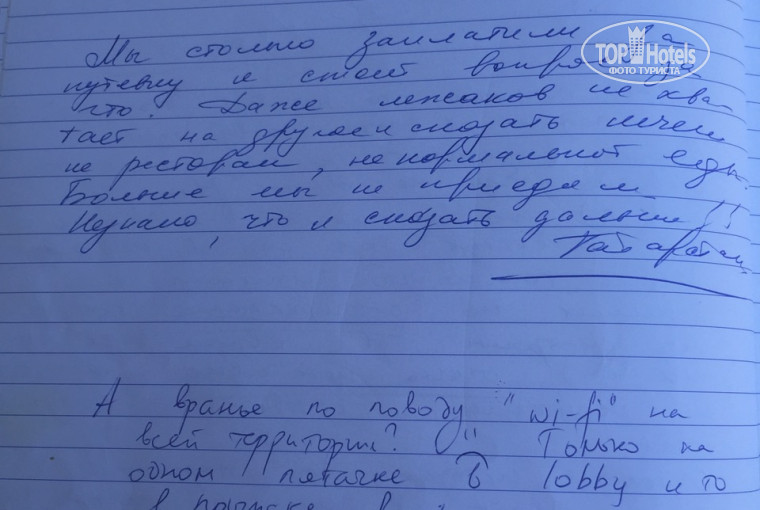 TOP Hotels
ФОТО ТУРИСТА
Мы столько заплатили за
путевку и стоит вопрос за
что. Даже лежаков не хва-
тает на другое и сказать нечем
не ресторан, не нормальной еды.
Больше мы не приедем
Незнаю, что и сказать дальше!!
Татарстан
А вранье по поводу "wi-fi" на
всей территории? Только на
одном пятачке в lobby и то
в